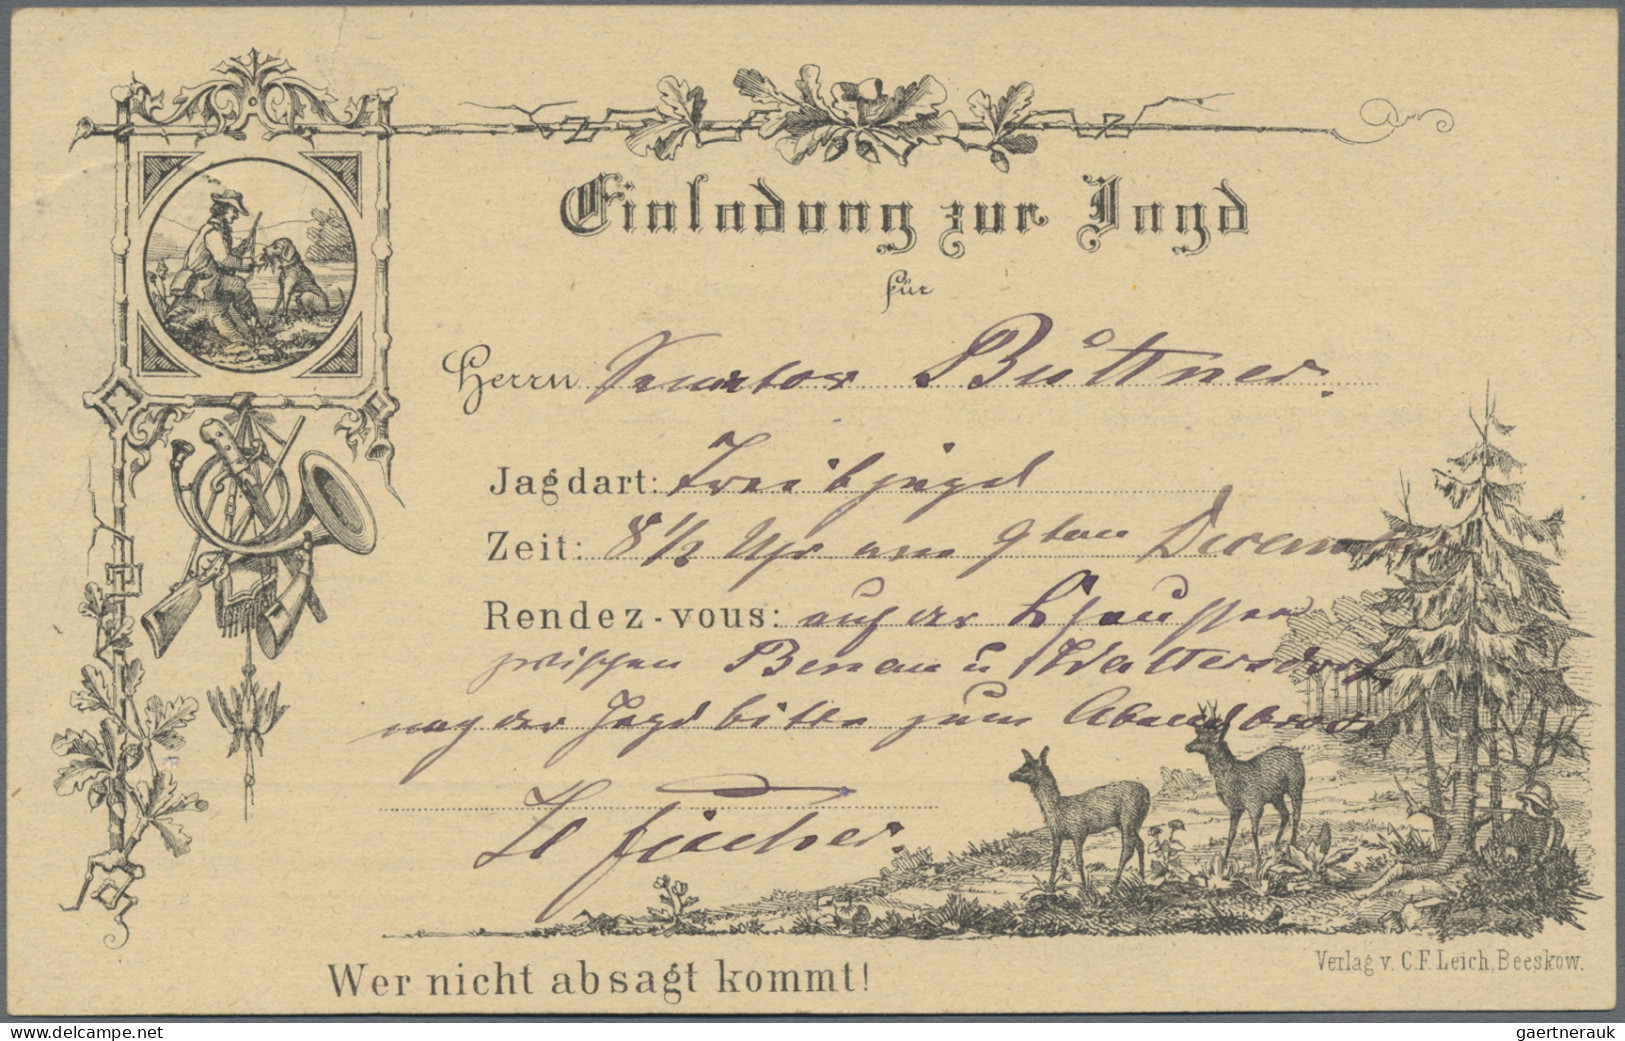 Einladung zur Jagd
für
Herrn Senator Büttner.
Jagdart: Treibjagd
Zeit: 8 1/2 Uhr am 9ten Decemb
Rendez-vous: auf der Chaussee
zwischen Benau u Waltersdorf,
nach der Jagd bitte zum Abendbrod
Fischer.
Wer nicht absagt kommt!
Verlag v. C.F. Leich, Beeskow.
www.delcampe.net
gaertnerauk